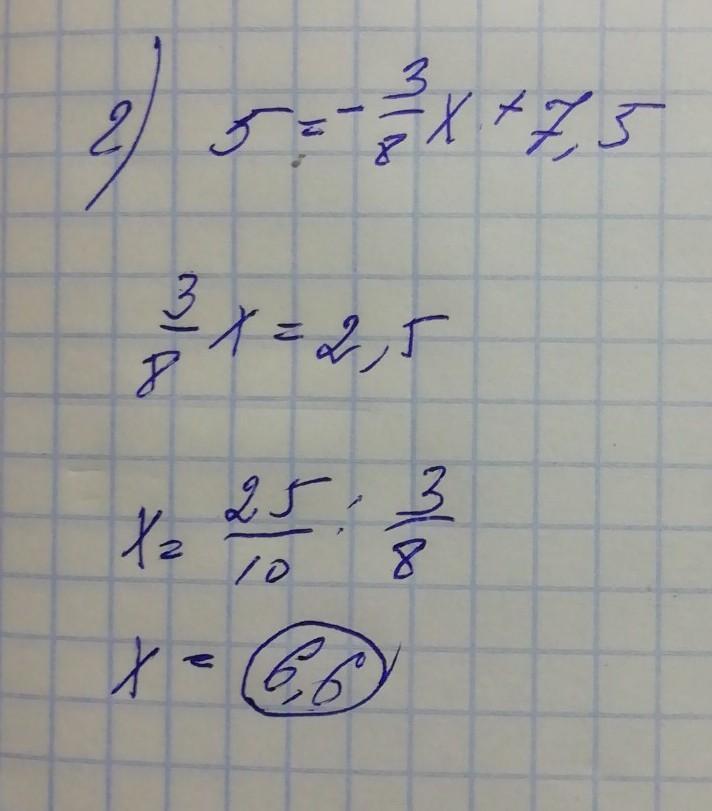 2) 5 = - 3/8 x + 7,5
3/8 x = 2,5
x = 25/10 : 3/8
x = 6,6